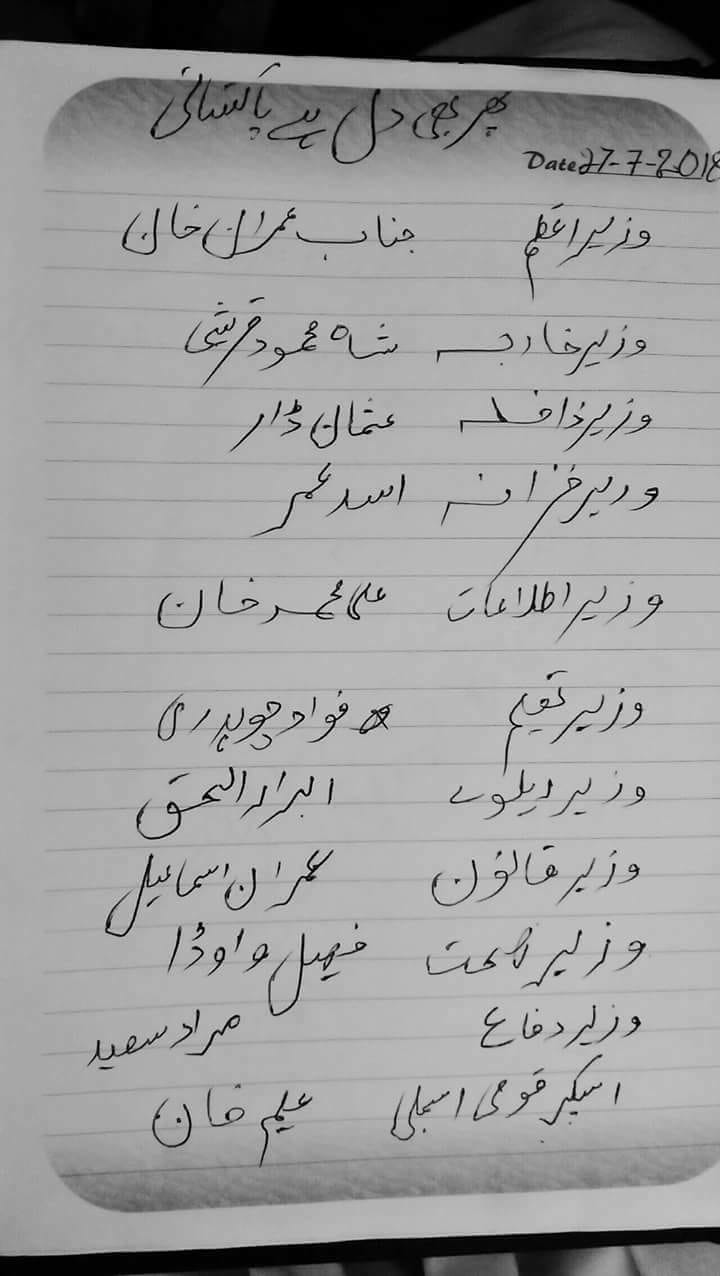 پھر بھی دل ہے پاکستانی
Date 27-7-2018
وزیراعظم جناب عمران خان
وزیر خارجہ شاہ محمود قریشی
وزیر داخلہ عثمان ڈار
وزیر خزانہ اسد عمر
وزیر اطلاعات علی محمد خان
وزیر تعلیم فواد چوہدری
وزیر ریلوے ابرارالحق
وزیر قانون عمران اسماعیل
وزیر صحت فیصل واوڈا
وزیر دفاع مراد سعید
اسپیکر قومی اسمبلی علیم خان